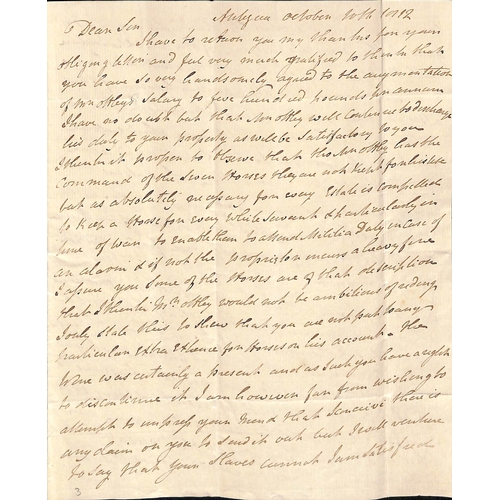 Antigua October 10th 1812
Dear Sir
I have to return you my thanks for your
obliging letter and feel very much gratified to think that
you have so very handsomely agreed to the augmentation
of Mr Otleys Salary to five hundred pounds per annum
I have no doubt but that Mr Otley will continue to discharge
his duty to your property as will be satisfactory to you
I think it proper to observe that tho Mr Otley has the
command of the Seven Horses they are not kept for his use
but as absolutely necessary for every Estate is compelled
to keep a Horse for every white Servant & particularly in
time of war to enable them to attend Militia Duty in case of
an alarm & if not the proprietor incurs a heavy fine
I assure you some of the Horses are of that description
that I think Mr Otley would not be ambitious of riding
I only state this to shew that you are not put to any
particular extra expence for Horses on his account. The
Wine was certainly a present and as such you have a right
to discontinue it I am however far from wishing to
attempt to impress your mind that I conceive there is
any claim on you to send it out but I will venture
to say that your Slaves cannot I am satisfied
3